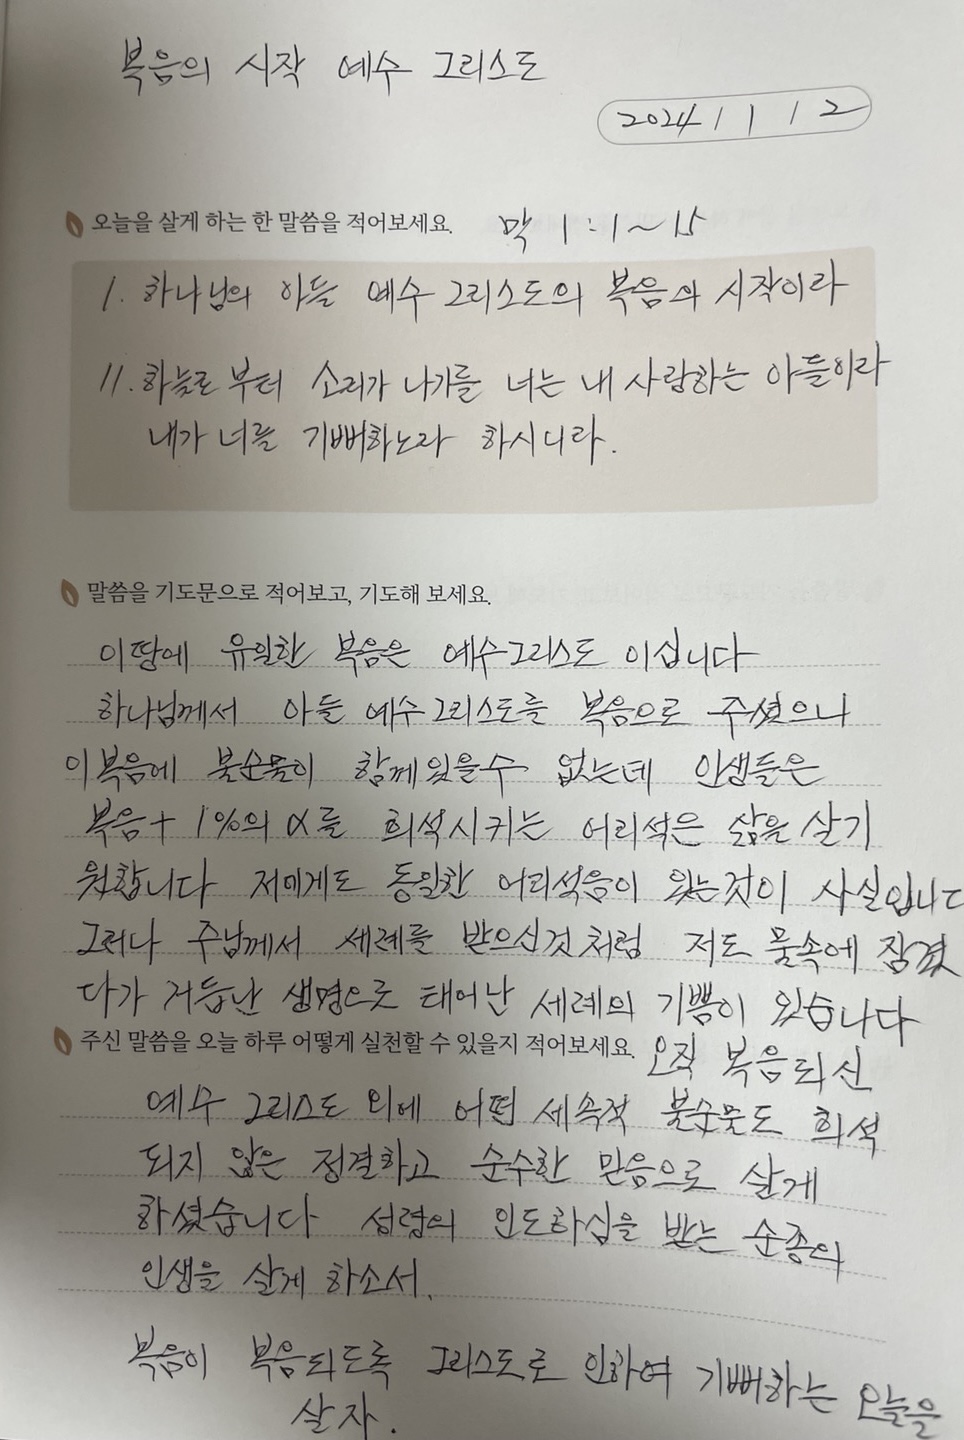 복음의 시작 예수 그리스도
2024 / 1 / 12
오늘을 살게 하는 한 말씀을 적어보세요. 막 1:1~15
1. 하나님의 아들 예수 그리스도의 복음의 시작이라
11. 하늘로 부터 소리가 나기를 너는 내 사랑하는 아들이라
내가 너를 기뻐하노라 하시니라.
말씀을 기도문으로 적어보고, 기도해 보세요.
이땅에 유일한 복음은 예수그리스도 이십니다
하나님께서 아들 예수그리스도를 복음으로 주셨으나
이복음에 불순물이 함께있을수 없는데 인생들은
복음+ 1%의 α를 희석시키는 어리석은 삶을 살기
원합니다 저에게도 동일한 어리석음이 있는것이 사실입니다
그러나 주님께서 세례를 받으신것 처럼 저도 물속에 잠겼
다가 거듭난 생명으로 태어난 세례의 기쁨이 있습니다
주신 말씀을 오늘 하루 어떻게 실천할 수 있을지 적어보세요. 오직 복음되신
예수 그리스도 외에 어떤 세속적 불순물도 희석
되지 않은 정결하고 순수한 믿음으로 살게
하셨습니다 성령의 인도하심을 받는 순종의
인생을 살게 하소서.
복음이 복음되도록 그리스도로 인하여 기뻐하는 오늘을
살자.